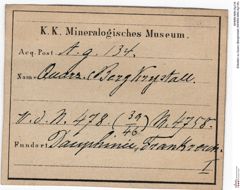 K. K. Mineralogisches Museum.
Acq. Post A. g. 134.
Name: Quarz. (Bergkrystall.
V. d. N. 478. (39/46) M. 4758.
Fundort Dauphinée, Frankreich
I